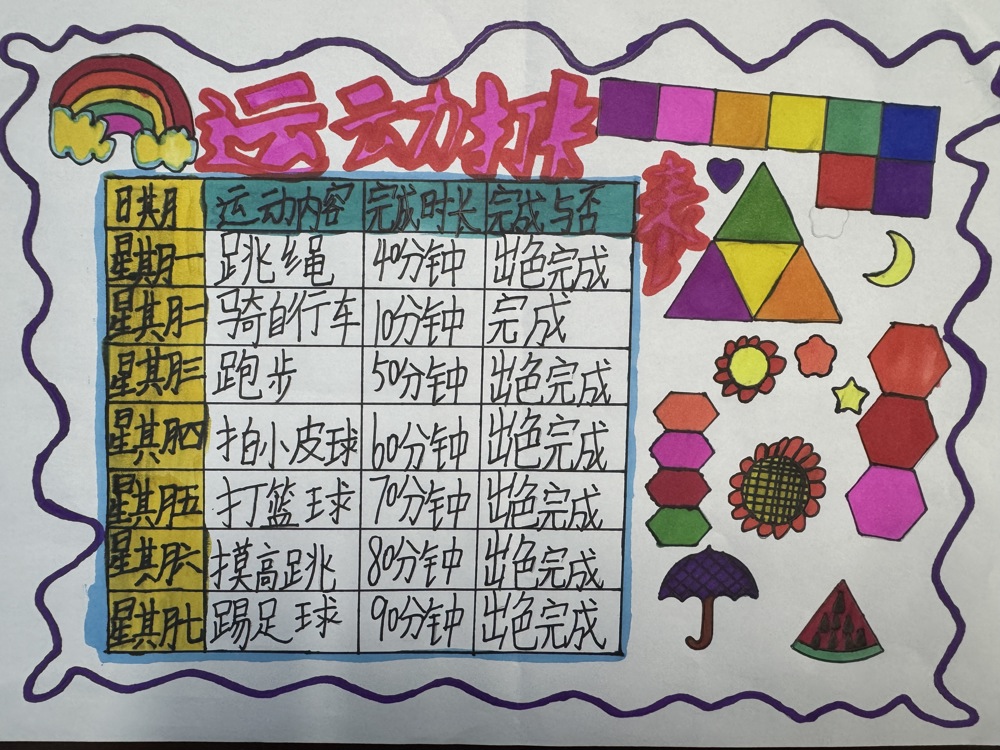 运云动打卡表
日期 运动内容 完成时长 完成与否
星期一 跳绳 40分钟 出色完成
星期二 骑自行车 10分钟 完成
星期三 跑步 50分钟 出色完成
星期四 拍小皮球 60分钟 出色完成
星期五 打篮球 70分钟 出色完成
星期六 摸高跳 80分钟 出色完成
星期七 踢足球 90分钟 出色完成